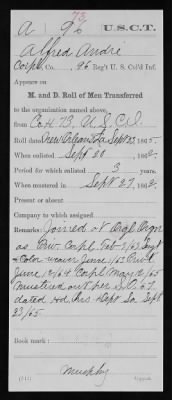 73
A | 96 | U.S.C.T.
Alfred André
Corpl, Co. , 96 Reg't U. S. Col'd Inf.
Appears on
M. and D. Roll of Men Transferred
to the organization named above,
from Co. H 73, U. S. C. I.
Roll dated New Orleans La Sept 23, 1865.
When enlisted Sept 20, 1862.
Period for which enlisted 3 years.
When mustered in Sept 27, 1862.
Present or absent
Company to which assigned
Remarks: Joined at Orgl Orgn
as Priv. Corpl Feb 1/63 Sergt
& Color June 1/63 Privt
June 12/64 Corpl May 6/65
Mustered out per S.O. 67
dated Hd Qrs Dept La. Sept
23/65
Book mark:
Murphy
(341) Copyist.